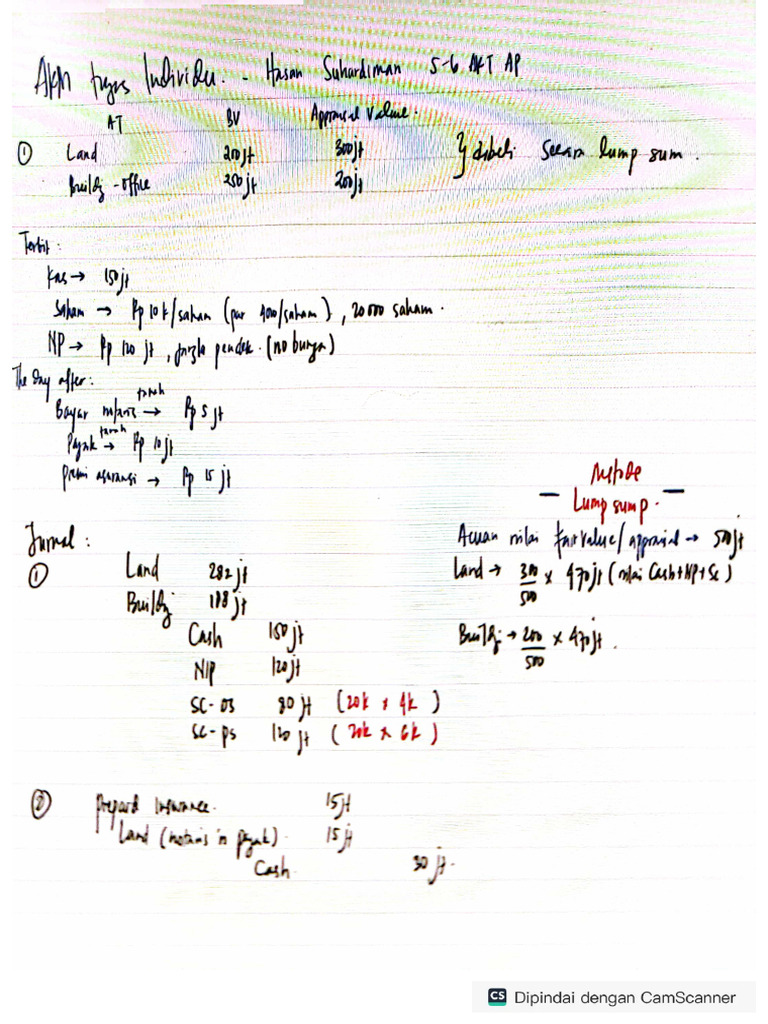 Akm tugas Individu. - Hasan Suhardiman 5-6 AKT AP
AT BV Appraisal Value.
① Land 200jt 300jt } dibeli secara lump sum.
Build'g - office 250jt 200jt
Terbit:
Kas → 150jt
Saham → Rp 10k/saham (par 4000/saham), 20 000 saham.
NP → Rp 120 jt, jangka pendek. (no bunga)
The day after:
Bayar notaris tanah → Rp 5 jt
Pajak tanah → Rp 10 jt
Premi asuransi → Rp 15 jt
Metode
- Lump sump. -
Jurnal:
Acuan nilai fair value/appraisal → 500jt
① Land 282jt
Land → 300/500 x 470jt (nilai Cash+NP+Sc)
Build'g 188jt
Cash 150jt
Build'g → 200/500 x 470jt.
N/P 120jt
SC-OS 80jt (20k x 4k)
SC-PS 120jt (20k x 6k)
② Prepaid Insurance. 15jt
Land (notaris 'n pajak). 15jt
Cash. 30jt.
CS Dipindai dengan CamScanner